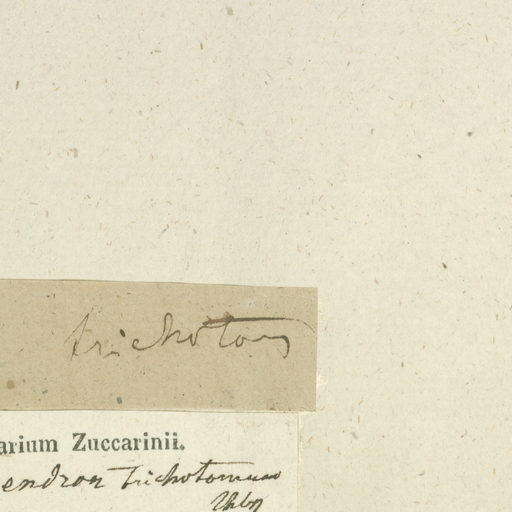 trichotom
arium Zuccarinii.
endron trichotomum
Thbg